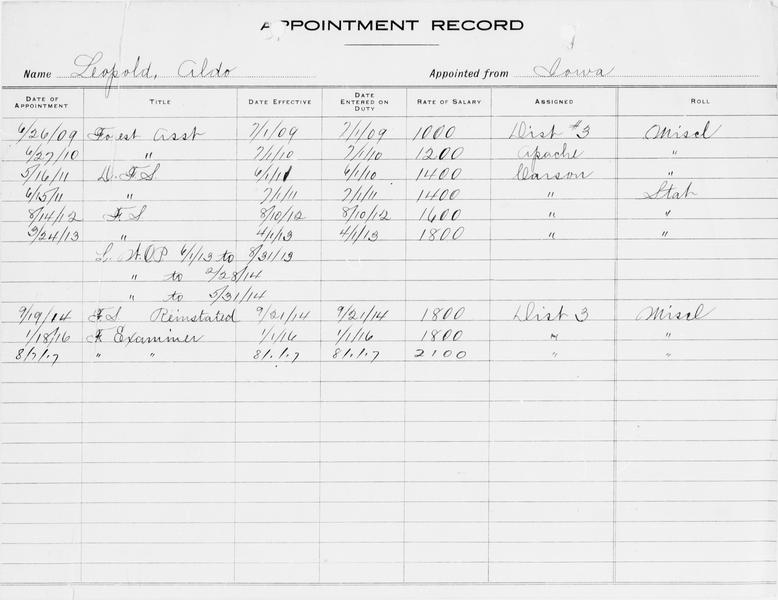 APPOINTMENT RECORD
Name Leopold, Aldo Appointed from Iowa
DATE OF APPOINTMENT TITLE DATE EFFECTIVE DATE ENTERED ON DUTY RATE OF SALARY ASSIGNED ROLL
6/26/09 Forest Asst 7/1/09 7/1/09 1000 Dist #3 Miscl
6/27/10 " 7/1/10 7/1/10 1200 Apache "
5/16/11 D.F.S 6/1/11 6/1/10 1400 Carson "
6/15/11 " 7/1/11 7/1/11 1400 " Stat
8/14/12 F.S 8/10/12 8/10/12 1600 " "
3/24/13 " 4/1/13 4/1/13 1800 " "
L.W.O.P 6/1/13 to 8/31/13
" to 2/28/14
" to 5/31/14
9/19/14 F.S Reinstated 9/21/14 9/21/14 1800 Dist 3 Miscl
1/18/16 F. Examiner 1/1/16 1/1/16 1800 " "
8/7/17 " " 8/1/17 8/1/17 2100 " "